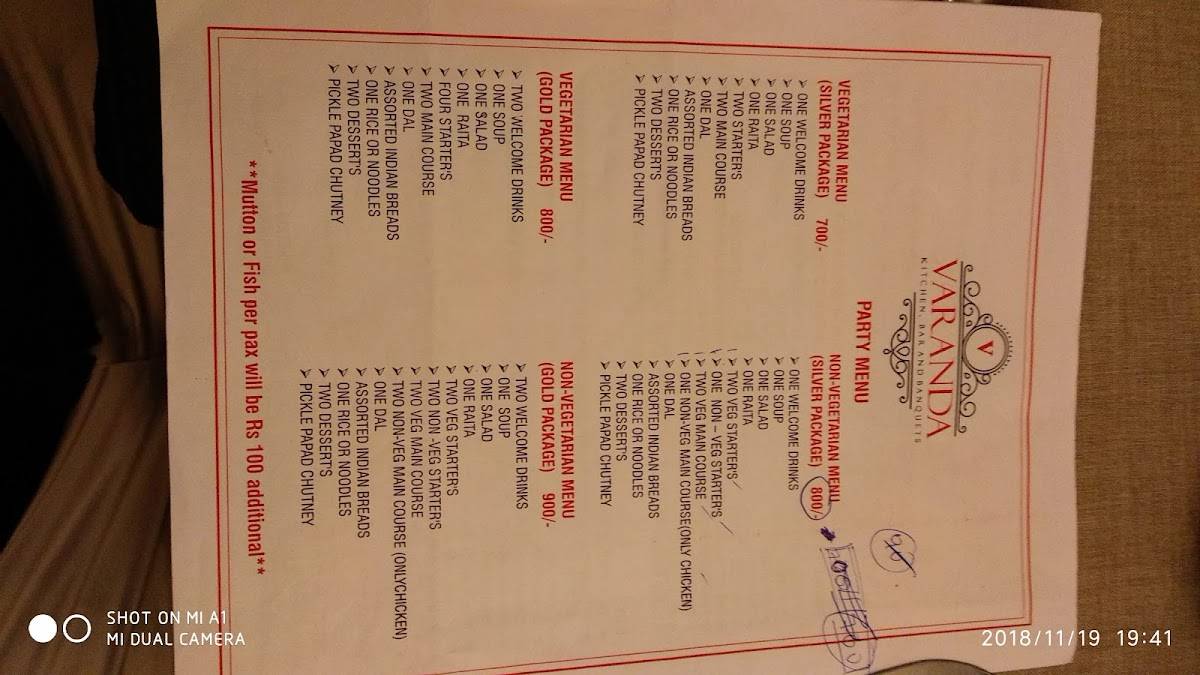 V
VARANDA
KITCHEN, BAR AND BANQUETS
PARTY MENU
VEGETARIAN MENU
(SILVER PACKAGE) 700/-
➢ ONE WELCOME DRINKS
➢ ONE SOUP
➢ ONE SALAD
➢ ONE RAITA
➢ TWO STARTER'S
➢ TWO MAIN COURSE
➢ ONE DAL
➢ ASSORTED INDIAN BREADS
➢ ONE RICE OR NOODLES
➢ TWO DESSERT'S
➢ PICKLE PAPAD CHUTNEY
NON-VEGETARIAN MENU
(SILVER PACKAGE) 800/-
➢ ONE WELCOME DRINKS
➢ ONE SOUP
➢ ONE SALAD
➢ ONE RAITA
➢ TWO VEG STARTER'S
➢ ONE NON – VEG STARTER'S
➢ TWO VEG MAIN COURSE
➢ ONE NON-VEG MAIN COURSE(ONLY CHICKEN)
➢ ONE DAL
➢ ASSORTED INDIAN BREADS
➢ ONE RICE OR NOODLES
➢ TWO DESSERT'S
➢ PICKLE PAPAD CHUTNEY
VEGETARIAN MENU
(GOLD PACKAGE) 800/-
➢ TWO WELCOME DRINKS
➢ ONE SOUP
➢ ONE SALAD
➢ ONE RAITA
➢ FOUR STARTER'S
➢ TWO MAIN COURSE
➢ ONE DAL
➢ ASSORTED INDIAN BREADS
➢ ONE RICE OR NOODLES
➢ TWO DESSERT'S
➢ PICKLE PAPAD CHUTNEY
NON-VEGETARIAN MENU
(GOLD PACKAGE) 900/-
➢ TWO WELCOME DRINKS
➢ ONE SOUP
➢ ONE SALAD
➢ ONE RAITA
➢ TWO VEG STARTER'S
➢ TWO NON -VEG STARTER'S
➢ TWO VEG MAIN COURSE
➢ TWO NON-VEG MAIN COURSE (ONLYCHICKEN)
➢ ONE DAL
➢ ASSORTED INDIAN BREADS
➢ ONE RICE OR NOODLES
➢ TWO DESSERT'S
➢ PICKLE PAPAD CHUTNEY
**Mutton or Fish per pax will be Rs 100 additional**
SHOT ON MI A1
MI DUAL CAMERA
2018/11/19 19:41